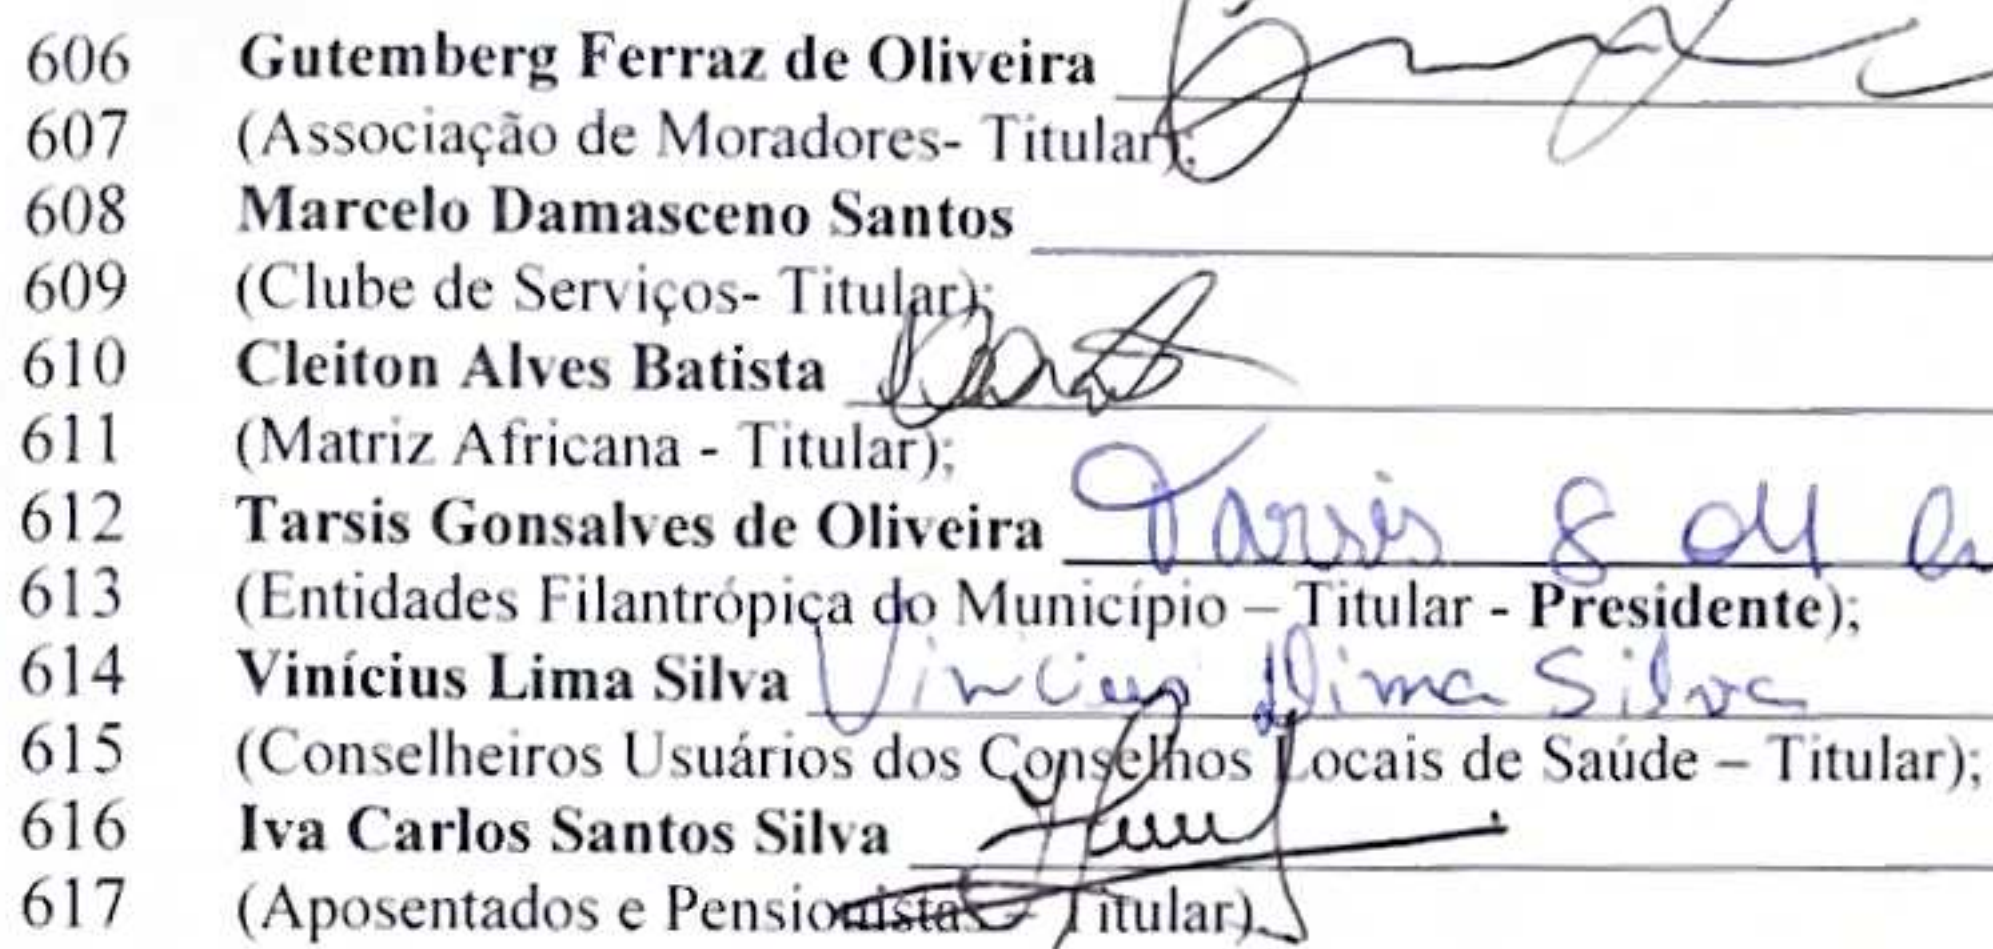 606 Gutemberg Ferraz de Oliveira
607 (Associação de Moradores- Titular);
608 Marcelo Damasceno Santos
609 (Clube de Serviços- Titular);
610 Cleiton Alves Batista
611 (Matriz Africana - Titular);
612 Tarsis Gonsalves de Oliveira Tarsis
613 (Entidades Filantrópica do Município – Titular - Presidente);
614 Vinícius Lima Silva Vinicius Lima Silva
615 (Conselheiros Usuários dos Conselhos Locais de Saúde – Titular);
616 Iva Carlos Santos Silva
617 (Aposentados e Pensionistas – Titular).